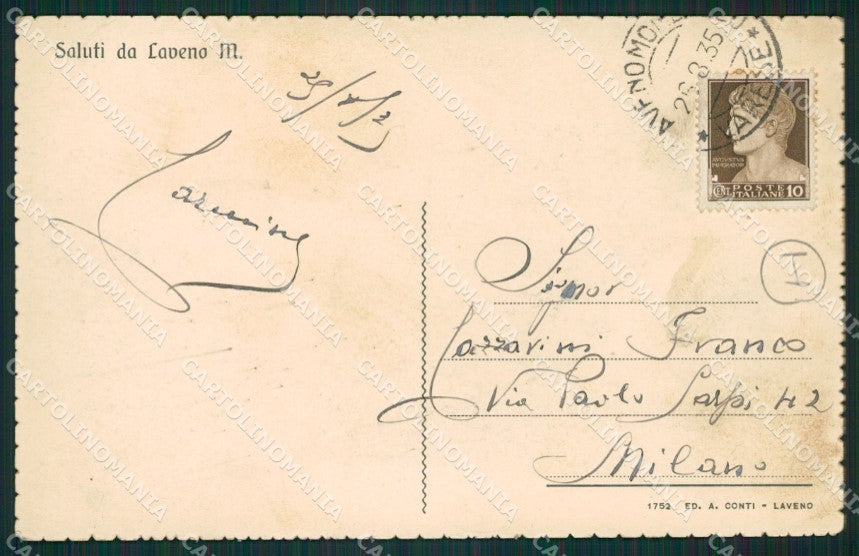 Saluti da Laveno M.
AVENOMO
26.8.35
VARESE
AVGVSTVS
IMPERATOR
CENT. POSTE ITALIANE 10
Signor
Lazzarini Franco
Via Paolo Sarpi 42
Milano
1752 ED. A. CONTI - LAVENO
CARTOLINOMANIA